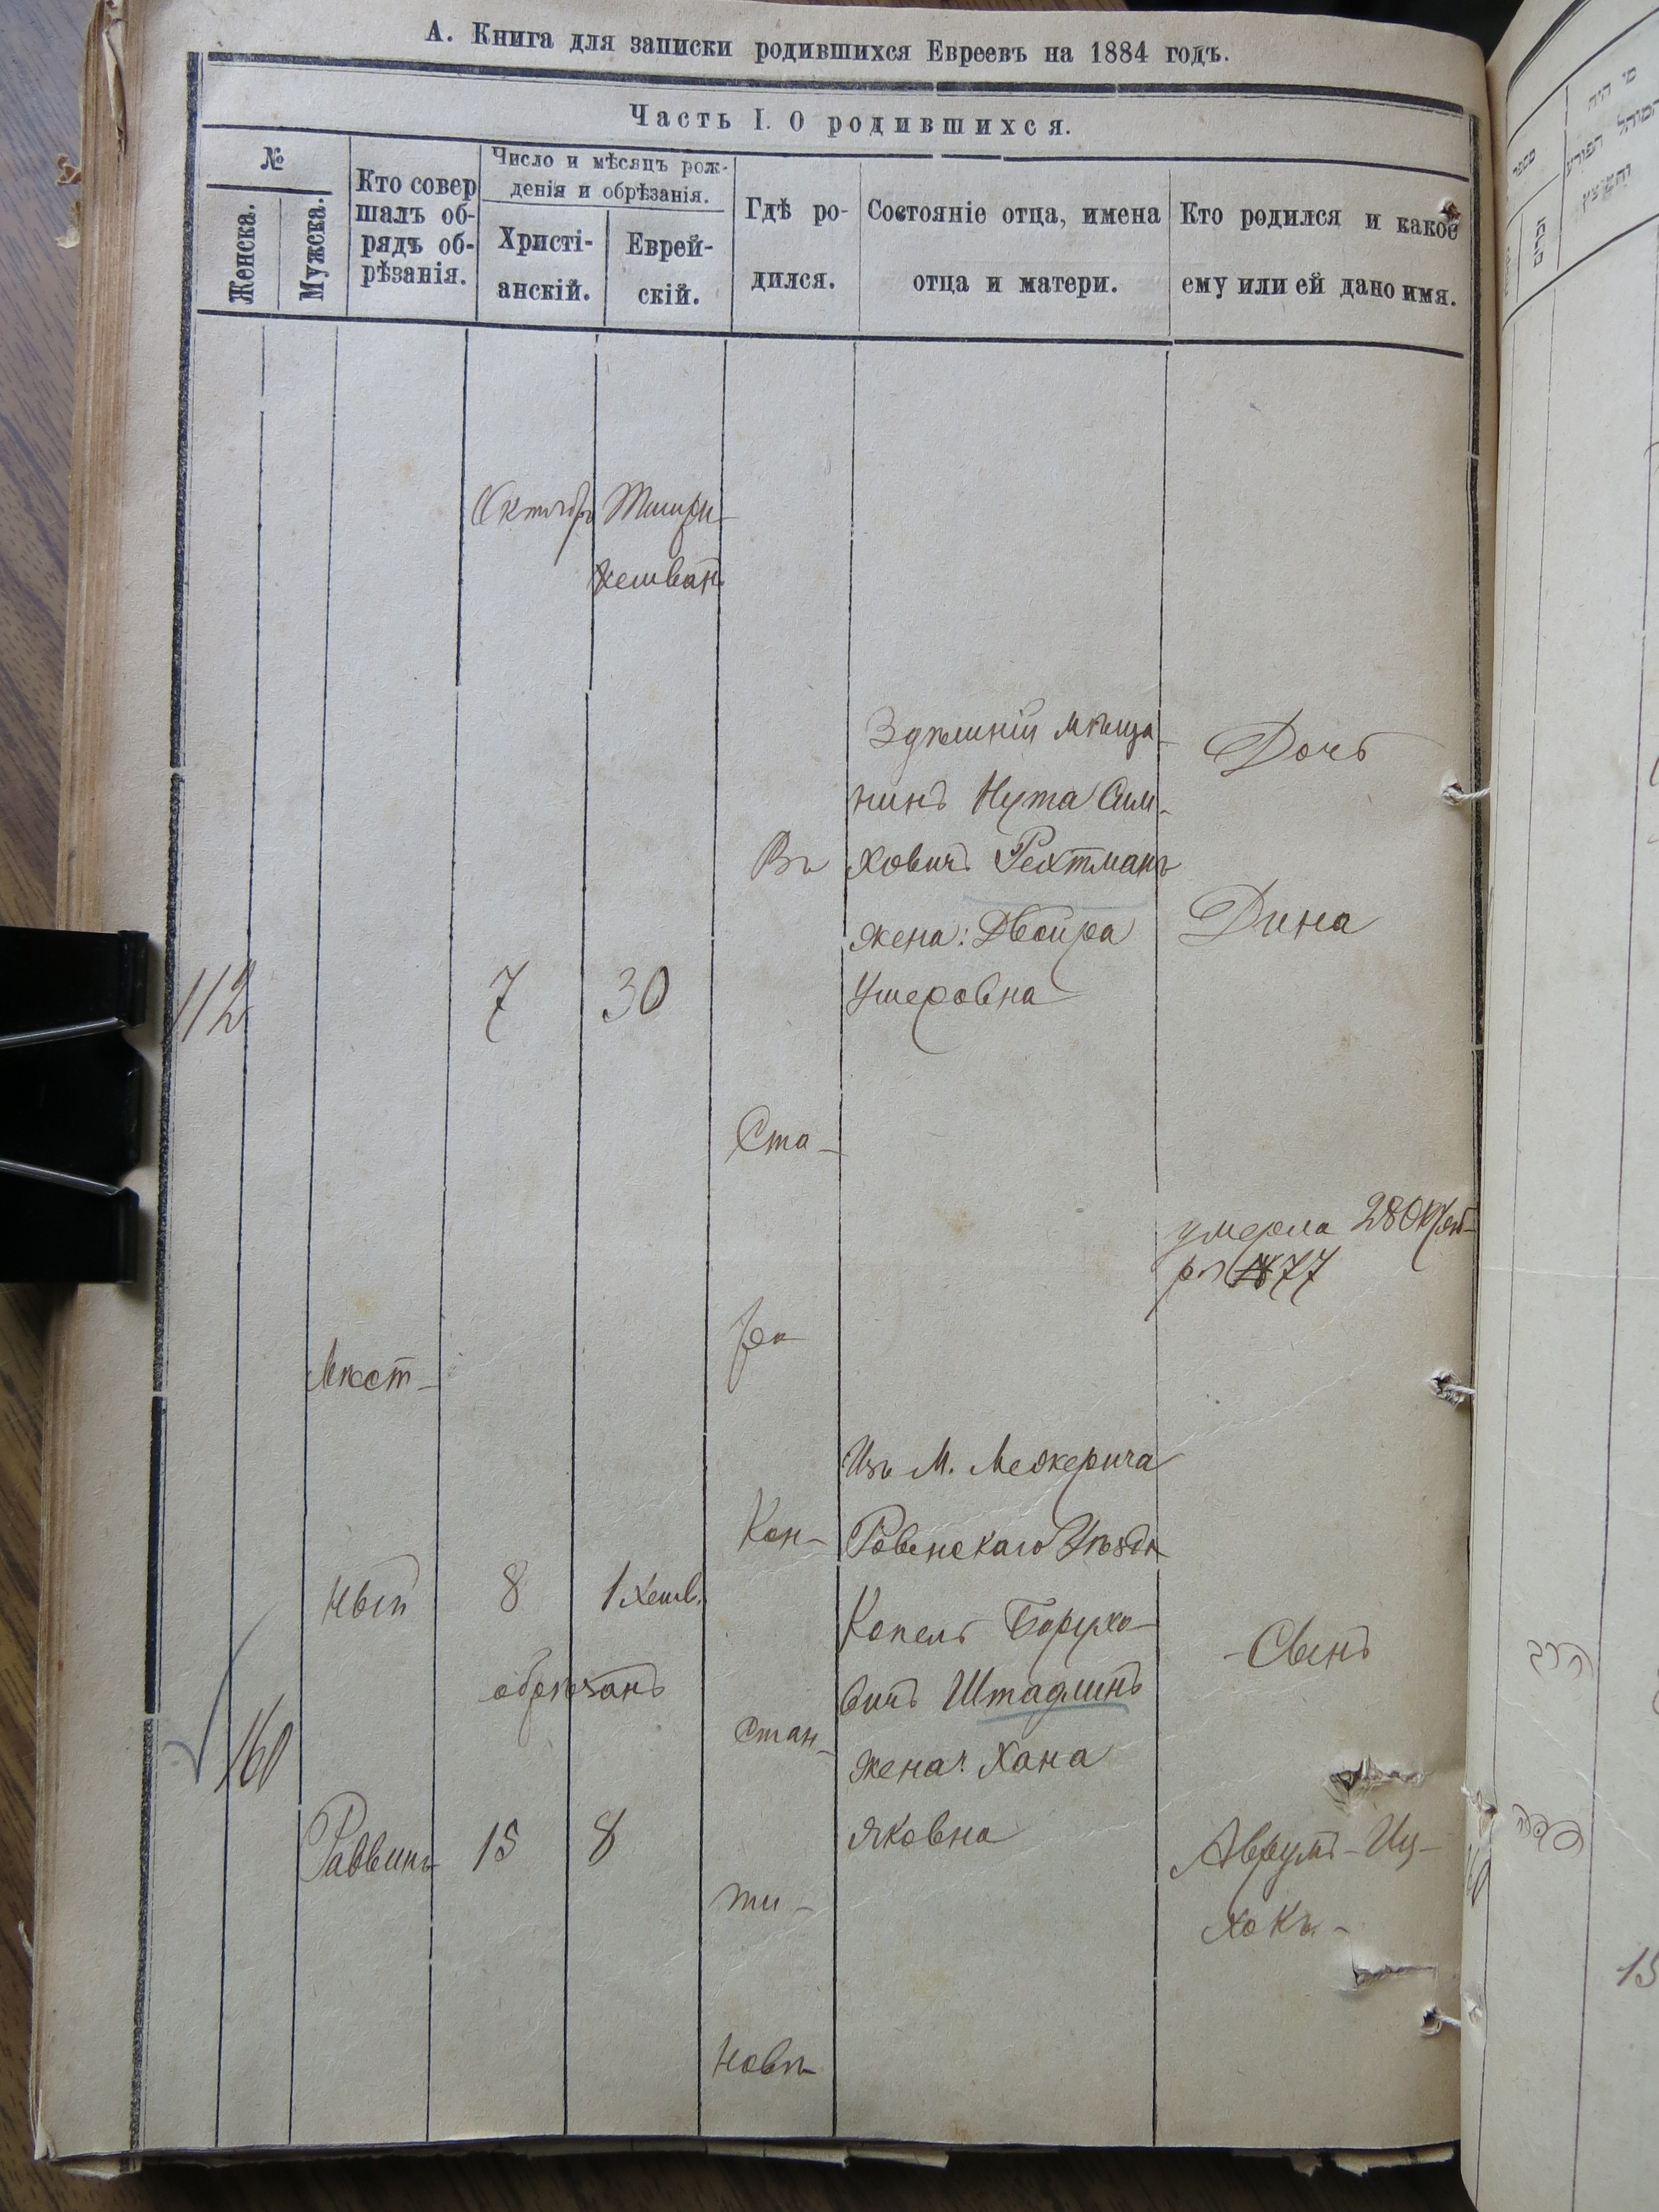 А. Книга для записки родившихся Евреевъ на 1884 годъ.
Часть I. О родившихся.
№
Женска.
Мужска.
Кто совер
шалъ об-
рядъ об-
рѣзанія.
Число и мѣсяцъ рож-
денія и обрѣзанія.
Христі-
анскій.
Еврей-
скій.
Гдѣ ро-
дился.
Состояніе отца, имена
отца и матери.
Кто родился и какое
ему или ей дано имя.
Октябрь Тишри-
Хешванъ
112
7
30
Въ
Ста-
ро-
Кон-
стан-
ти-
новѣ
Здѣшній мѣща-
нинъ Нута Сим-
ховичъ Рехтманъ
жена: Двойра
Ушеровна
Дочь
Дина
умерла 28 Октяб-
ря 77
160
Мѣст-
ный
Раввинъ
8
1 Хешв.
обрѣзанъ
15
8
Изъ М. Межерича
Ровенскаго Уѣзда
Копель Борухо-
вичъ Штадлинъ
жена: Хана
Яковна
Сынъ
Аврумъ-Иц-
хокъ
מי היה
המוהל הפורע
והמוצץ
מספר
זכרים
15